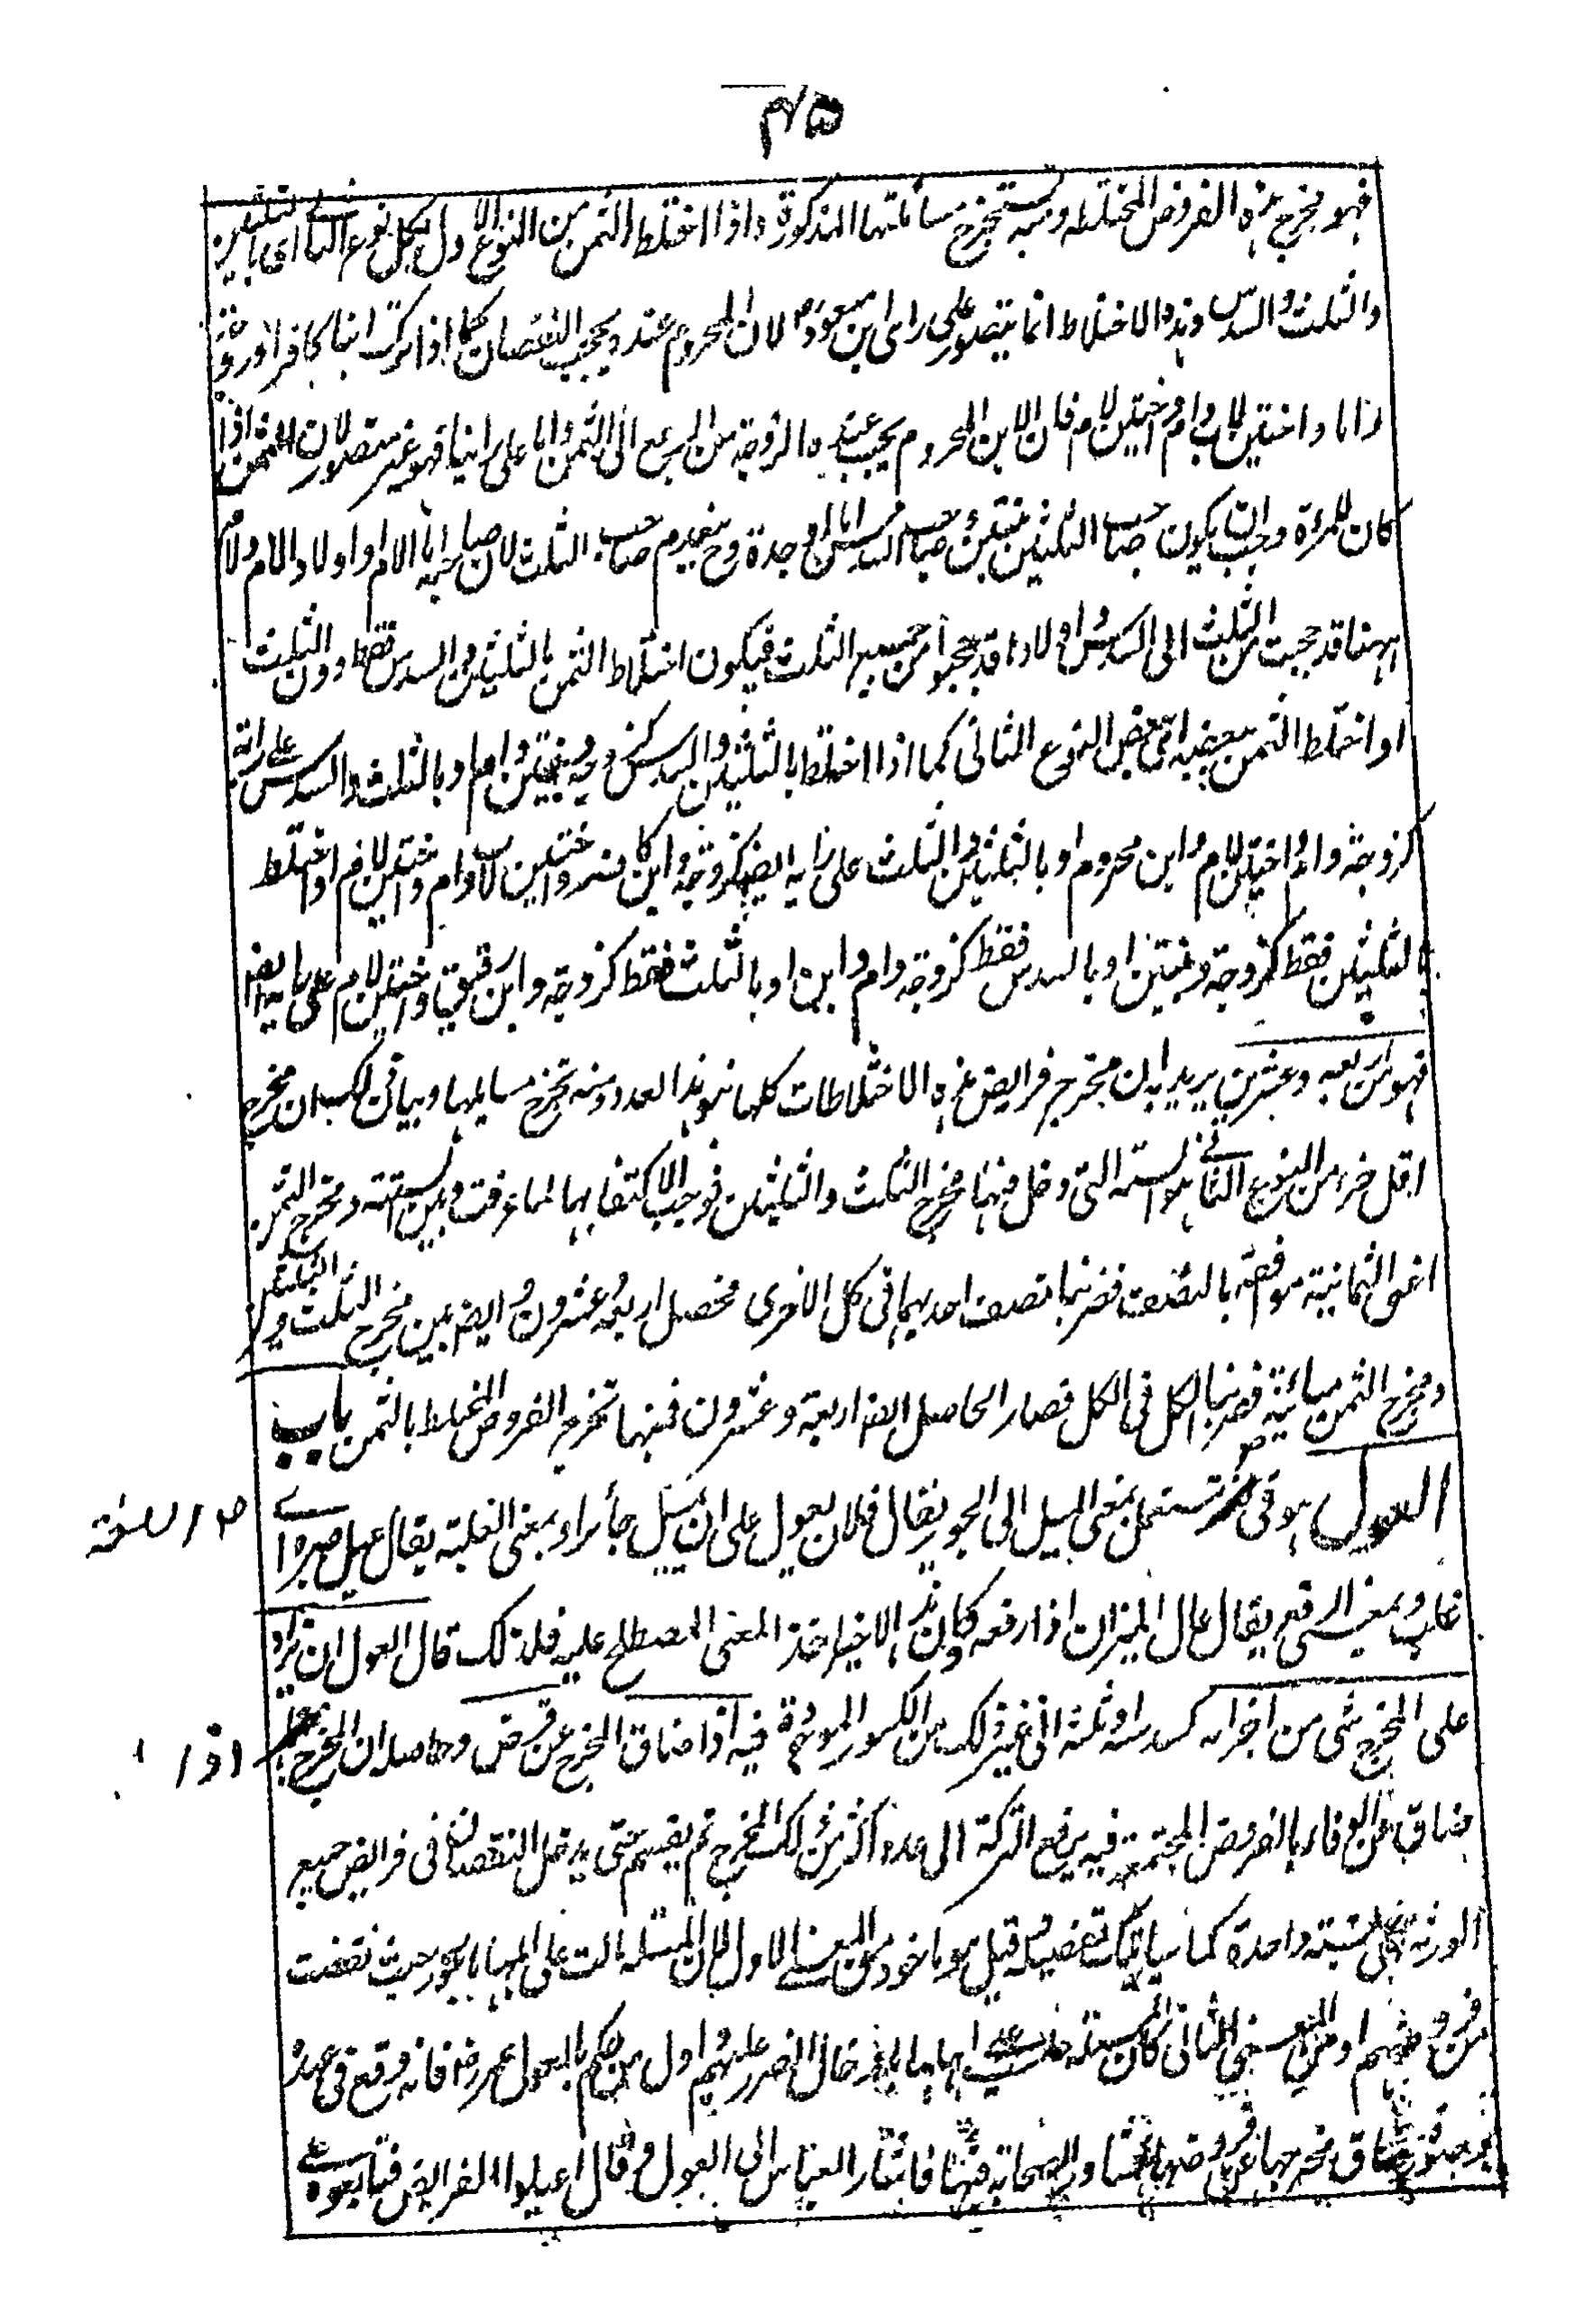 ٤٥
فهو مخرج هذه الفروض المختلطة ومنه تستخرج مسائلتها المذكورة واذا اختلط الثمن من النوع الاول بكل نوع الثانى اى بالثلثين
والثلث والسدس وهذه الاختلاط انما يتصور على راى ابن مسعود رض لان المحروم عنده يحجب النقصان كما اذا ترك ابنا كافرا وزوجة
واما واختين لاب وام واختين لام فان الابن المحروم يحجب عنده الزوجة من الربع الى الثمن واما على راينا فهو غير متصور لان الثمن اذا
كان للمرأة وجب ان يكون صاحب الثلثين بنتين وصاحب السدس اما او جدة وح ينعدم صاحب الثلث لان صاحبه اما الام او اولاد الام والام
ههنا قد حجبت من الثلث الى السدس واولادها قد حجبوا من جميع الثلث فيكون اختلاط الثمن بالثلثين والسدس فقط دون الثلث
او اختلط الثمن ببعضه اى بعض النوع الثانى كما اذا اختلط بالثلثين والسدس كزوجة وبنتين وام او بالثلث والسدس على رايه
كزوجة وام واختين لام وابن محروم او بالثلثين والثلث على رايه ايضا كزوجة وابن كافر واختين لاب وام واختين لام او اختلط
بالثلثين فقط كزوجة وبنتين او بالسدس فقط كزوجة وام وابن او بالثلث فقط كزوجة وابن رقيق واختين لام على رايه ايضا
فهو من اربعة وعشرين يريد به ان مخرج فرايض هذه الاختلاطات كلها هو هذا العدد ومنه تخرج مسايلها وبيانى لك ان مخرج
اقل جزء من النوع الثانى هو الستة التى دخل فيها مخرج الثلث والثلثين فوجب الاكتفا بها لما عرفت وبين الستة ومخرج الثمن
اعنى الثمانية موافقة بالنصف فضربنا نصف احديهما فى كل الاخرى فحصل اربعة وعشرون وايضا بين مخرج الثلث والثلثين
ومخرج الثمن مباينة فضربنا الكل فى الكل فصار الحاصل ايضا اربعة وعشرون فمنها تخرج الفروض المختلطة بالثمن باب
العول هو فى تستعمل بمعنى الميل الى الجور يقال فلان يعول على اى يميل جائرا وبمعنى الغلبة يقال عيل صبره اى
غلب وبمعنى الرفع يقال عال الميزان اذا رفعه وكان هذا الاخير اخذ المعنى المصطلح عليه فلذلك قال العول ان يزاد
على المخرج شى من اجزائه كسدسه او ثلثه الى غير ذلك من الكسور الموجودة فيه اذا ضاق المخرج عن فرض وحاصله ان المخرج
ضاق عن الوفاء بالفروض المجتمعة فيه يرفع التركة الى عدد اكثر من ذلك المخرج ثم يقسم حتى يدخل النقصان فى فرايض جميع
الورثة على نسبة واحدة كما سياتيك تفصيله قيل هو ماخوذ من المعنى الاول لان المسئلة مالت على اهلها بالجور حيث نقصت
من فروضهم او من المعنى الثانى كان المسئلة غلبت اهلها بادخال الضرر عليهم واول من حكم بالعول عمر رض فانه وقع فى عهده
صورة ضاق مخرجها عن فروضها فشاور الصحابة فيها فاشار العباس الى العول وقال اعيلوا الفرايض فتابعوه على